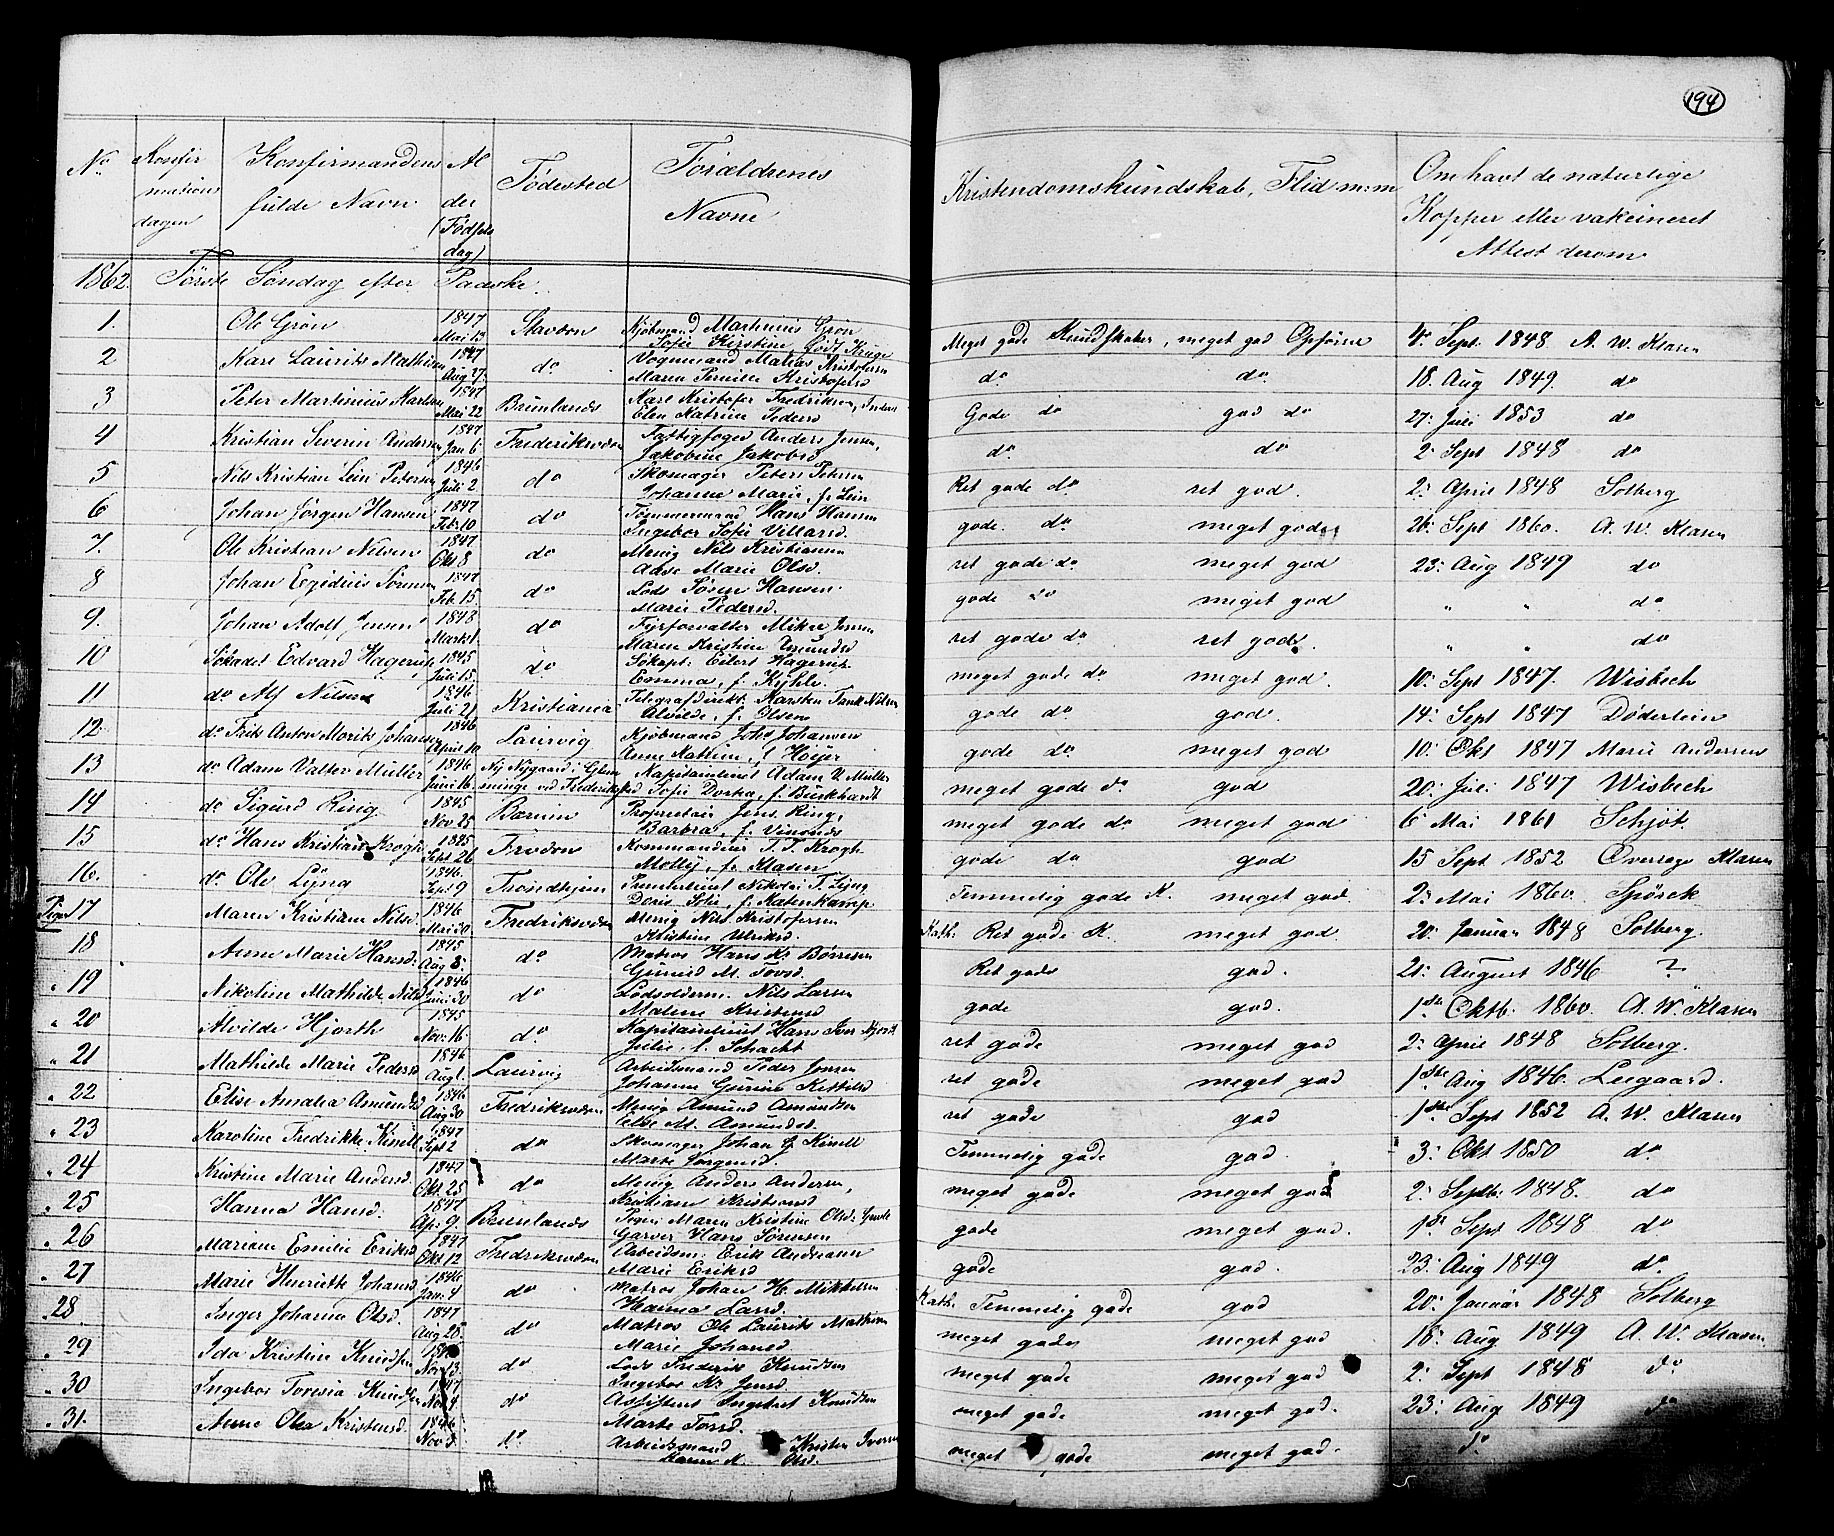 194
No Konfirmationsdagen Konfirmandens fulde Navn Alder (Fødselsdag) Fødested Forældrenes Navne Kristendomskundskab, Flid m:m Om havt de naturlige Kopper eller vakcineret Attest derom
1862. Første Søndag efter Paaske.
1. Ole Grøn 1847 Mai 13 Staværn Kjøbmand Martinius Grøn Sofie Kirstine født Kruge Meget gode Kundskaber, meget god Opførsel 4de Sept. 1848 A. W. Klasen
2 Karl Laurits Mathisen 1847 Aug 27. do Vognmand Matias Kristofersen Maren Pernille Kristofersd do do. 18. Aug 1849. do
3 Peter Martinius Karlsen 1847 Mai 22 Brunlanæs Karl Kristofer Fredriksen, Elen Katrine Pedersd Gode do god do 27: Juli 1853 do
4 Kristian Severin Andersen 1847 Jan 6. Frederiksværn Fattigfoged Anders Jensen, Jakobine Jakobsd do. do 2: Sept 1848 do
5 Nils Kristian Lein Petersen 1846 Juli 2 do Skomager Peters Petersen Johanne Marie, f. Lein Ret gode do. ret god. 2: April 1848 Solberg
6 Johan Jørgen Hansen 1847 Feb: 10 do. Tømmermand Hans Hansen Ingebor Sofie Villarsd. gode. do. meget gode 26: Sept 1860. A. W. Klasen
7. Ole Kristian Nilsen 1847 Okt 8 do Menig Nils Kristiansen Aase Marie Olsd. ret gode do. meget god 23: Aug 1849 do
8 Johan Egidius Sørensen 1847 Feb. 15 do. Lods Søren Hansen. Marie Pedersd. gode do meget god " " do
9. Johan Adolf Jensen 1848 Marts 1. do Fyrforvalter Mikael Jensen Maren Kristine Amundsd ret gode do ret god. " " do
10 Søkadet Edvard Hagerup 1845 Juli 15. do Søkapt: Eilert Hagerup. Emma, f. Kyhle. meget gode do. meget god. 10: Sept 1847. Wisbech
11 do Alf Nilsen 1846 Juli 21 Kristiania Telegrafdirekt. Karsten Tank Nilsen Alvilde, f. Olsen gode do. god. 14: Sept 1847 Døderlein
12. do Frits Anton Morits Johansen 1846 April 10 Laurvig Kjøbmand Joh. Johansen Anne Katrine, f. Høyer gode do. meget god 10: Okt 1847 Marie Andersen
13 do Adam Valter Müller 1846 Juni 16. Ny Nygaard i Glemminge ved Frederiksstad Kapitainleut Adam V. Müller Sofie Dorthea, f. Burkhardt meget gode do god 20: Juli 1847 Wisbech
14 do Sigurd Ring 1845 Nov 25 Bærum Proprietair Jens Ring, Barbra, f. Vinsnes meget gode do. meget god 6: Mai 1861 Schjøt.
15 do Hans Kristian Krogh 1845 Sept 26 Frvæern Kommandeur T. T. Krogh Molly, f. Klasen gode do god 15 Sept 1852 Overlæge Klasen
16. do Ole Lyng 1846. Sept 9 Trondhjem Premierleut Nikolai T. Lyng Doris Sofie, f. Katenkamp Temmelig gode K. meget god. 2: Mai 1860. Spørck
Piger 17 Maren Kristiane Nilsd. 1846 Mai 30. Fredriksværn Menig Nils Kristofersen Kristine Ulriksd. Kath: Ret gode K. meget god 20: Januar 1848 Solberg.
" 18 Anne Marie Hansd. 1845 Aug 8: do. Matros Hans Kr. Børresen Gunild M. Torsd. Ret gode god. 21: August 1846 ?
" 19 Nikoline Mathilde Nilsd 1846 Juni 30 do Lodsolderm. Nils Larsen Malene Kristensd gode god. 1ste Oktb. 1860. A. W. Klasen
" 20 Alvilde Hjorth 1845 Nov: 16. do. Kapitainleut Hans Iver Hjorth Julie, f. Schacht ret gode meget god 2: April 1848 Solberg.
" 21 Mathilde Marie Pedersd 1846 Aug 1. Laurvig Arbeidsmand Peder Jonsen Johanne Gurine Kittilsd ret gode meget god 1ste Aug 1846. Leegaard.
" 22 Elise Amalia Amundsd 1846 Aug 30 Fredriksværn Menig Amund Amundsen Else M. Amundsd. ret gode god 1ste Sept 1852 A. W. Klasen
" 23 Karoline Fredrikke Kinell 1847 Sept 2 do Skomager Johan J. Kinell Marte Jørgensd. Temmelig gode god. 3: Okt 1850 do.
" 24 Kristine Marie Andersd. 1847 Okt. 25 do Menig Anders Andersen, Kristiane Kristensd meget gode meget god 2: Septb: 1848. do
" 25 Hanna Hansd. 1847 Apr: 9. Brunlanæs Pigen Maren Kristine Olsd. Garver Hans Sørensen gode meget god. 1ste Sept 1848 do
" 26 Mariane Emilie Eriksd 1847 Okt 12 Fredriksværn Arbeidsm: Erik Andreasen Marie Eriksd gode god. 23: Aug 1849 do.
" 27 Marie Henriette Johansd 1846 Jan: 4 do Matros Johan H. Mikkelsen Hanna Larsd. Kath: Temmelig gode god 20: Januar 1848 Solberg
28. Inger Johanne Olsd. 1847 Aug 28. do Matros Ole Laurits Mathisen Marie Johansd meget gode meget god 18: Aug 1849 A. W. Klasen
" 29 Ida Kristine Knudsen Nov: 13. do Lods Frederik Knudsen Ingebor Kr. Jensd. meget gode meget god 2: Sept 1848 do
" 30 Ingebor Toresia Knudsen 1847 Nov 4 do Assistent Ingebret Knudsen Marte Torsd. meget gode meget god. 23: Aug 1849 do
" 31. Anne Olea Kristensd. 1846 Nov 3: do. Arbeidsmand Kristen Iversen Maren K. Olsd. meget gode meget god. do